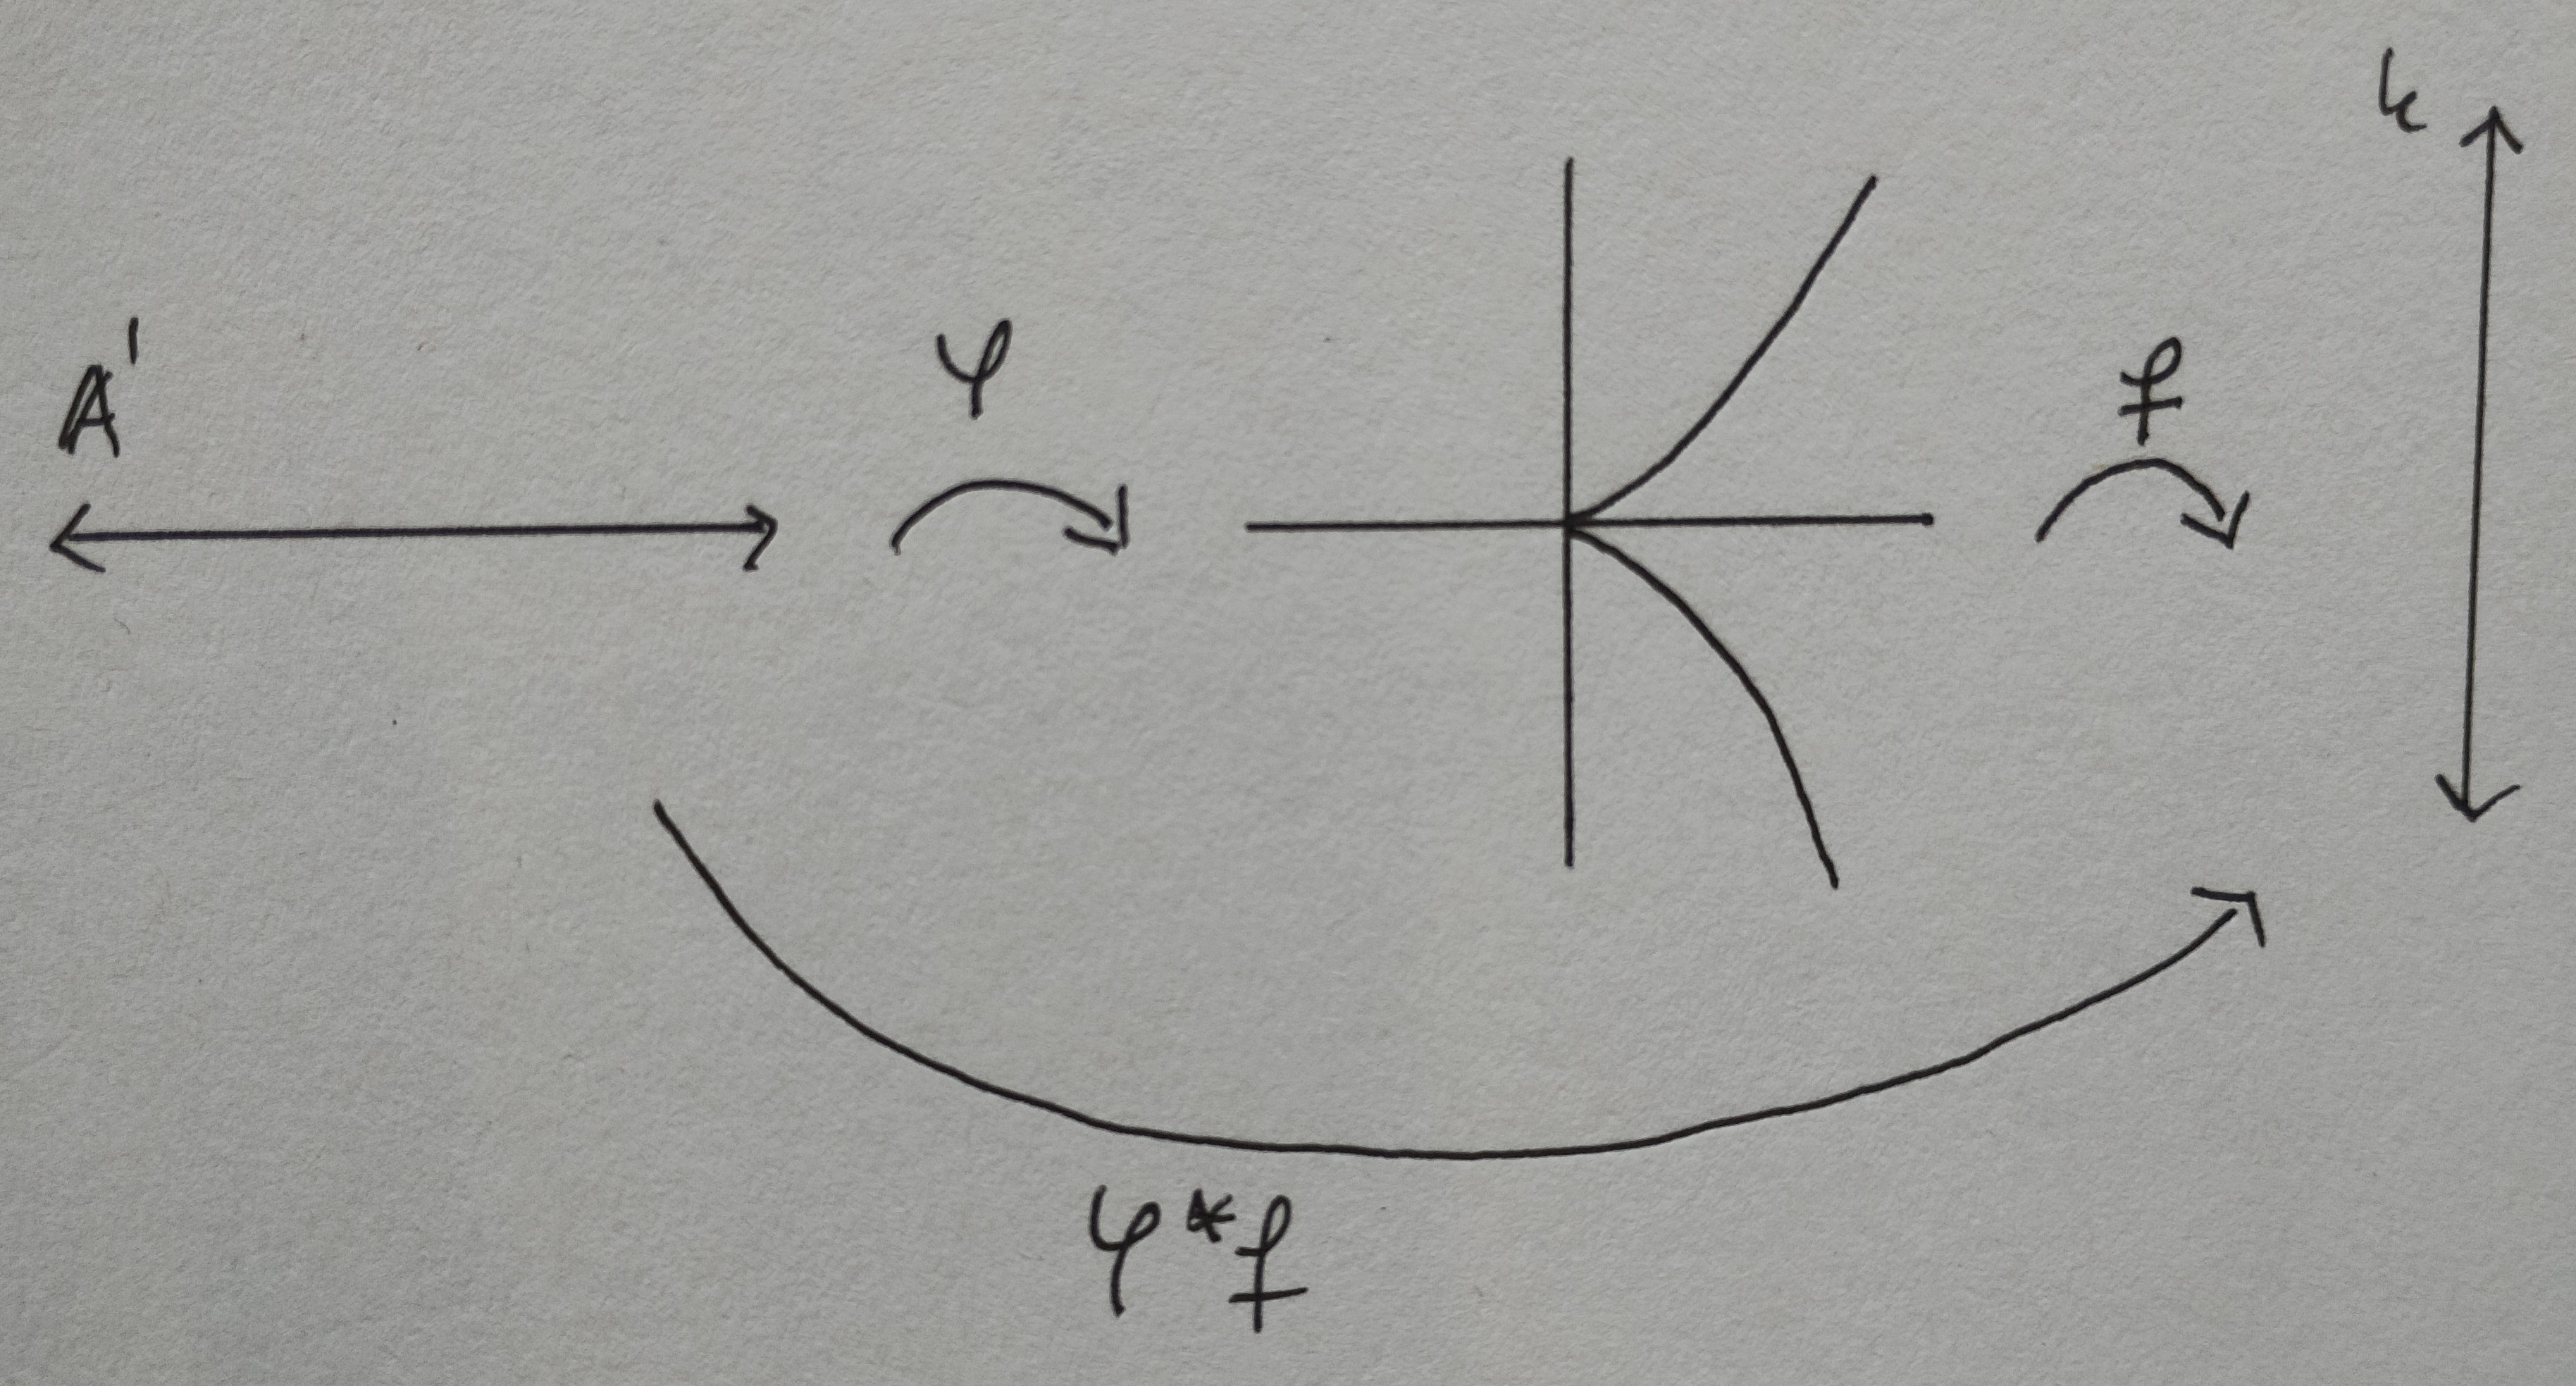 A¹
φ
f
k
φ*f